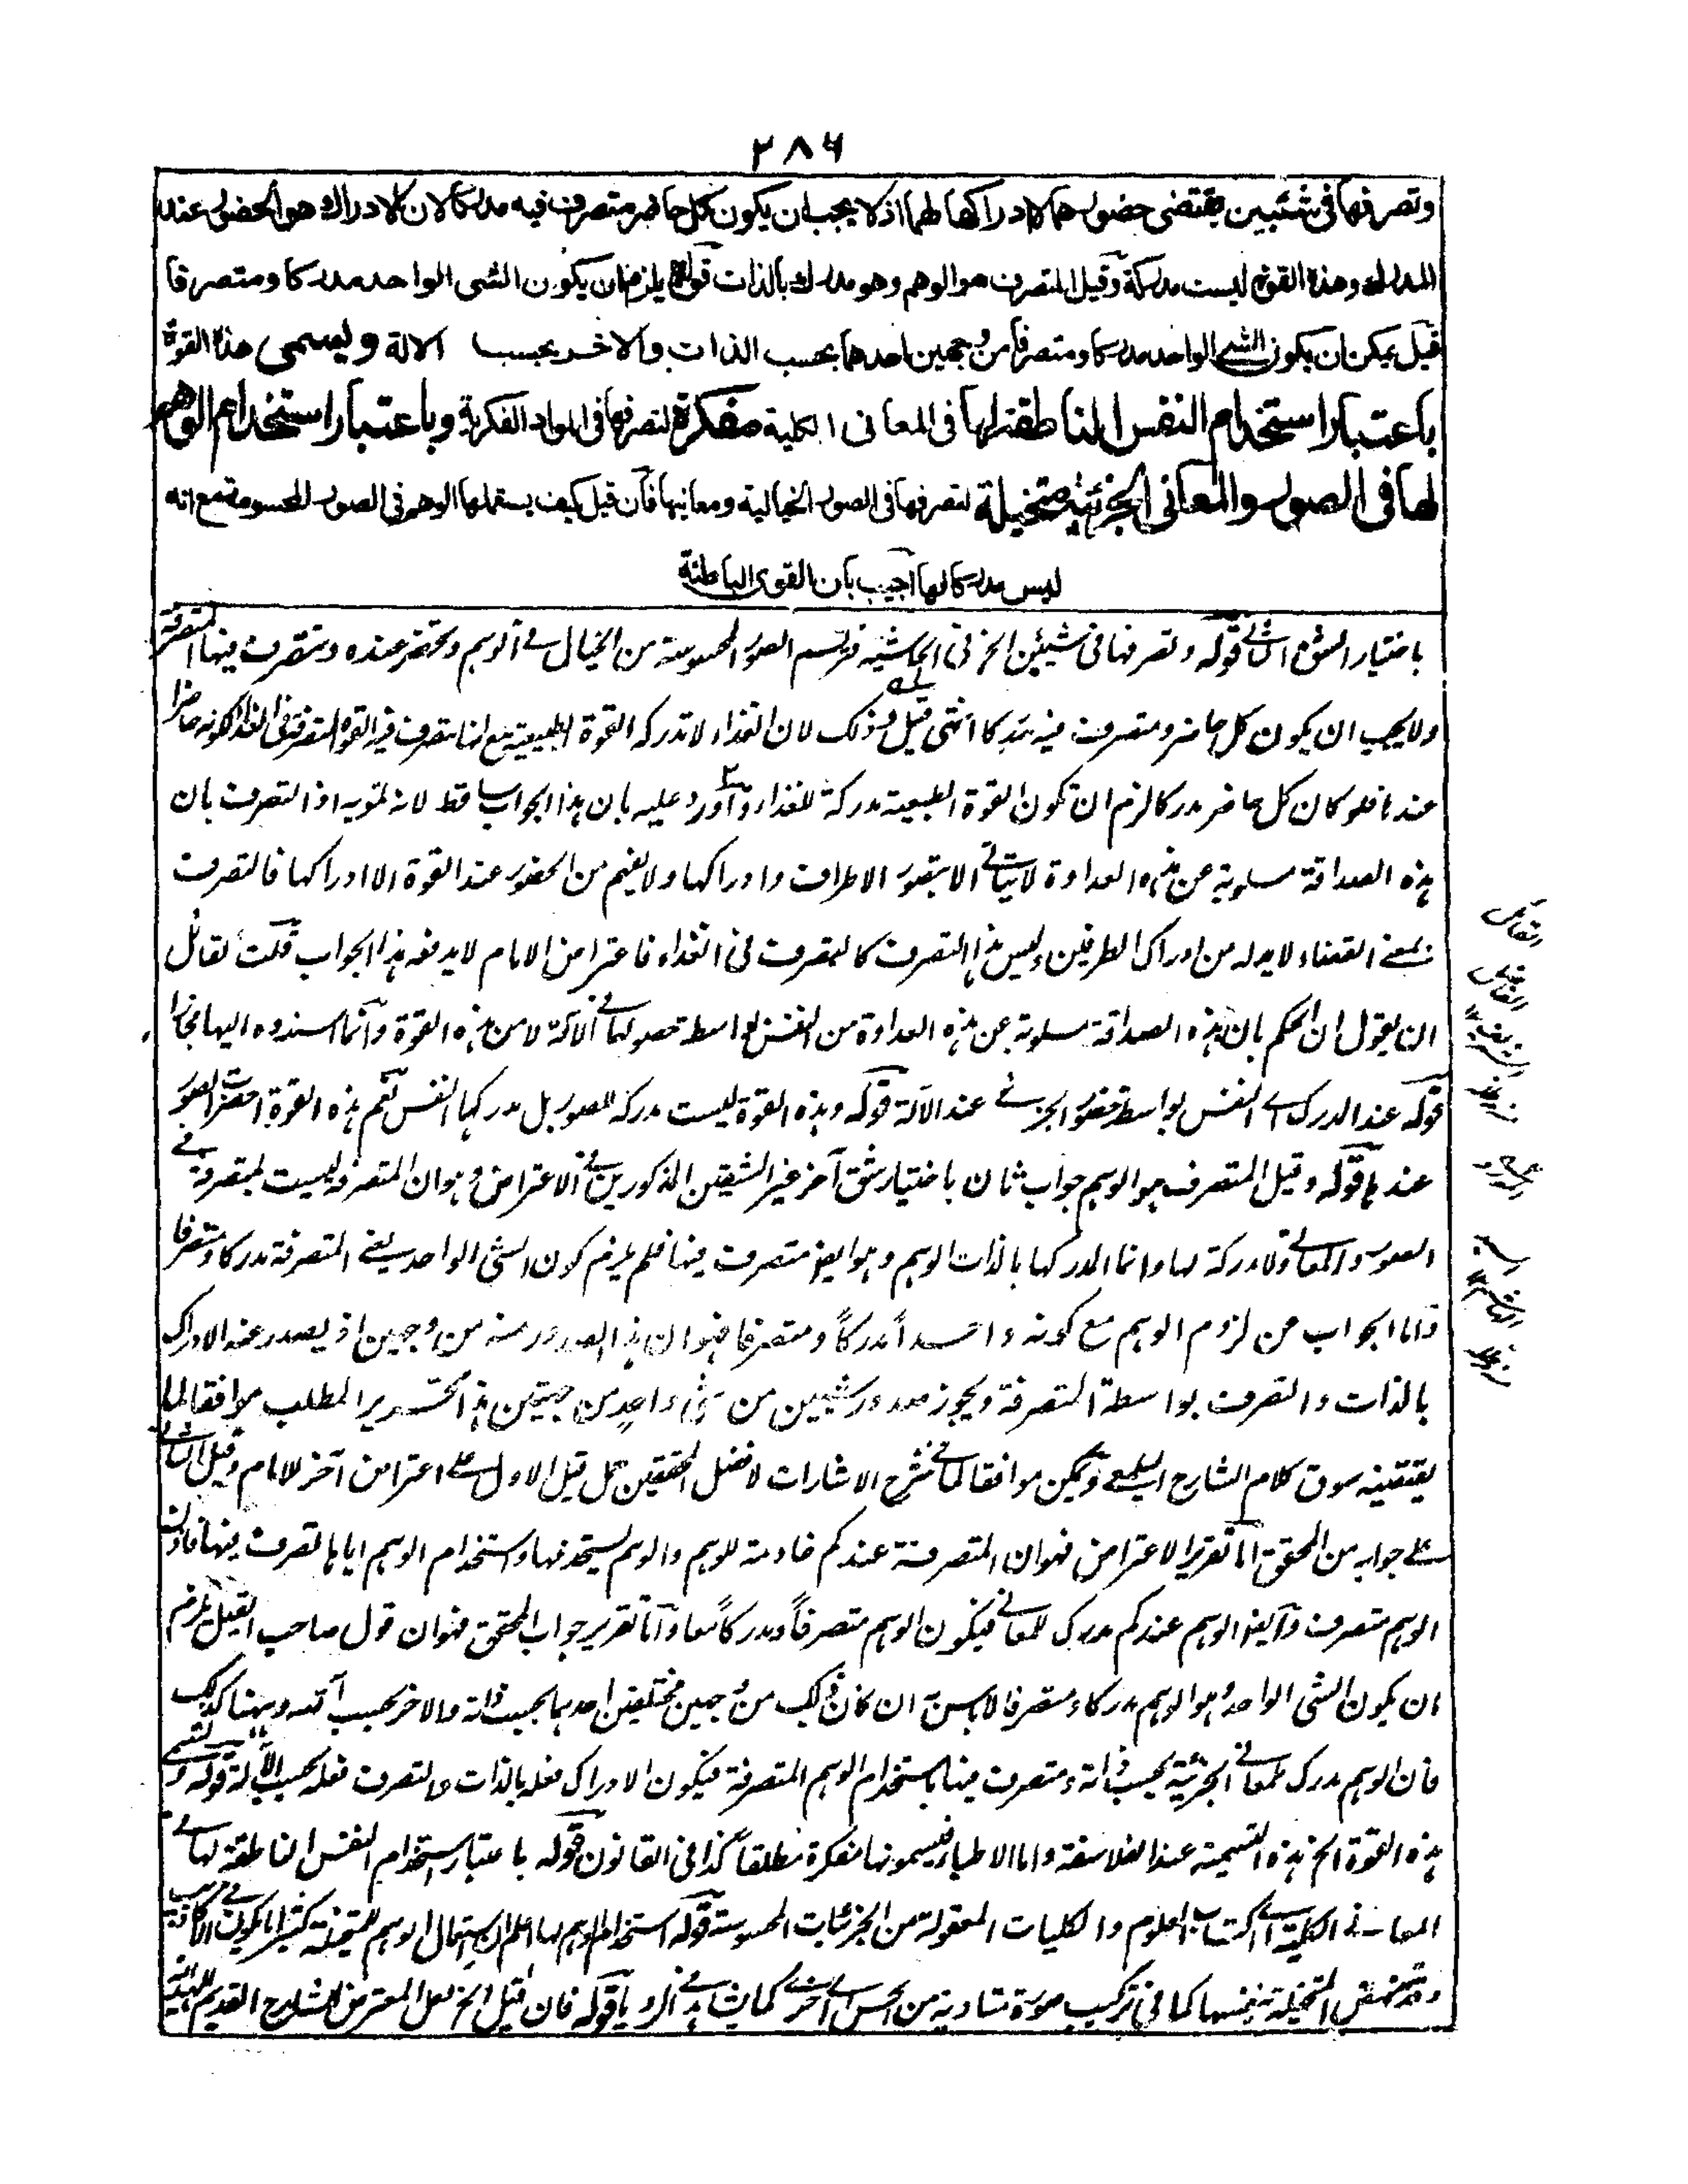 ٢٨٦
وتصرفها في شيئين يقتضي حضورهما لا ادراكها لهما اذ لا يجب ان يكون كل حاضر متصرف فيه مدركا لان الادراك هو الحضور عند
المدرك وهذه القوة ليست مدركة وقيل المتصرف هو الوهم وهو مدرك بالذات قوله يلزم ان يكون الشي الواحد مدركا ومتصرفا
قيل يمكن ان يكون الشي الواحد مدركا ومتصرفا من وجهين احدهما بحسب الذات والاخر بحسب الالة ويسمى هذه القوة
باعتبار استخدام النفس الناطقة لها في المعاني الكلية مفكرة لتصرفها في المواد الفكرية وباعتبار استخدام الوهم
لها في الصور والمعاني الجزئية متخيلة لتصرفها في الصور الخيالية ومعانيها فان قيل كيف يستعملها الوهم في الصور المحسوسة مع انه
ليس مدركا لها اجيب بان القوى الباطنة
باختيار الشق الثاني قوله وتصرفها في شيئين الخ في الحاشية فترتسم الصور المحسوسة من الخيال في الوهم وتحضر عنده وتتصرف فيها المتصرفة
ولا يجب ان يكون كل حاضر ومتصرف فيه مدركا انتهى قيل وذلك لان الغذاء لا تدركه القوة الطبيعية مع انها تتصرف فيه القوة المتصرفة في الغذا لكونه حاضرا
عندها فلو كان كل حاضر مدركا لزم ان تكون القوة الطبيعية مدركة للغذاء واورد عليه بان هذا الجواب ساقط لانه تمويه اذ التصرف بان
هذه الصداقة مسلوبة عن هذه العداوة لا يتاتى الا بتصور الاطراف وادراكها ولا يفهم من الحضور عند القوة الا ادراكها فالتصرف
بمعنى القضاء لا بد له من ادراك الطرفين وليس هذا التصرف كالتصرف في الغذاء فاعتراض الامام لا يدفعه هذا الجواب قلت لقائل
ان يقول ان الحكم بان هذه الصداقة مسلوبة عن هذه العداوة من النفس بواسطة حصولها في الالة لا من هذه القوة وانما اسندوه اليها مجازا
قوله عند المدرك اي النفس بواسطة حضور الجزئي عند الالة قوله وهذه القوة ليست مدركة للصور بل مدركها النفس نعم هذه القوة احضرت الصور
عندها قوله وقيل المتصرف هو الوهم جواب ثان باختيار شق آخر غير الشقين المذكورين في الاعتراض وهو ان المتصرفة ليست بمتصرفة في
الصور والمعاني ولا مدركة لها وانما المدرك لها بالذات الوهم وهو ايضا متصرف فيها فلم يلزم كون الشي الواحد يعني المتصرفة مدركا ومتصرفا
واما الجواب عن لزوم الوهم مع كونه واحدا مدركا ومتصرفا فهو ان هذا الصدور منه من وجهين اذ يصدر عنه الادراك
بالذات والتصرف بواسطة المتصرفة ويجوز صدور شيئين من شي واحد من جهتين هذا تحرير المطلب موافقا لما
يقتضيه سوق كلام الشارح ويمكن موافقا لما في شرح الاشارات لافضل المحققين حمل قيل الاول على اعتراض آخر للامام وقيل الثاني
على جوابه من المحقق اما تقرير الاعتراض فهو ان المتصرفة عندكم خادمة للوهم والوهم يستخدمها واستخدام الوهم اياها تصرف فيها فاذن
الوهم متصرف وايضا الوهم عندكم مدرك للمعاني فيكون الوهم متصرفا ومدركا معا واما تقرير جواب المحقق فهو ان قول صاحب القيل يلزم
ان يكون الشي الواحد وهو الوهم مدركا ومتصرفا لا باس به ان كان ذلك من وجهين مختلفين احدهما بحسب ذاته والاخر بحسب آلته وههنا كذلك
فان الوهم مدرك للمعاني الجزئية بحسب ذاته ومتصرف فيها باستخدام الوهم المتصرفة فيكون الادراك فعله بالذات والتصرف فعله بحسب الآلة قوله وتسمى
هذه القوة الخ هذه التسمية عند الفلاسفة واما الاطباء فيسمونها مفكرة مطلقا كذا في القانون قوله باعتبار استخدام النفس الناطقة لها في
المعاني الكلية اي اكتساب العلوم والكليات المعقولة من الجزئيات المحسوسة قوله استخدام الوهم لها اعلم ان استعمال الوهم للمتخيلة كثيرا ما يكون
المتخيلة بنفسها كما في تركيب صورة متادية من الحس الى اخرى كما يشاهد في الرويا قوله فان قيل الخ لعل المعترض الشارح القديم